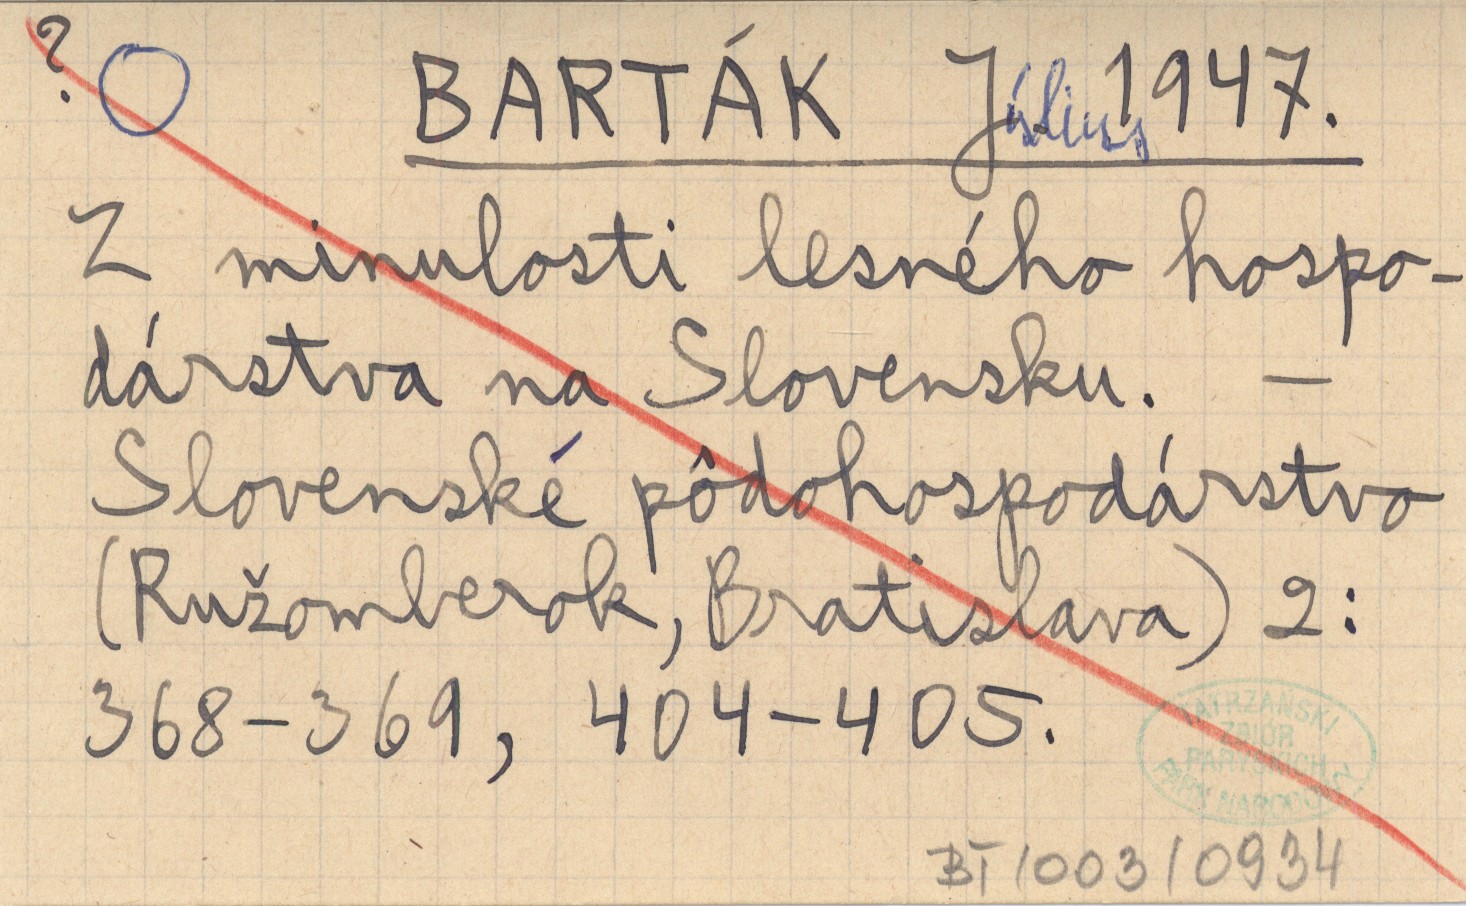 ?
BARTÁK Július 1947.
Z minulosti lesného hospo-
dárstva na Slovensku. —
Slovenské pôdohospodárstvo
(Ružomberok, Bratislava) 2:
368-369, 404-405.
TATRZAŃSKI
ZBIÓR
PARYSKICH
PARK NARODOWY
BT/003/0934